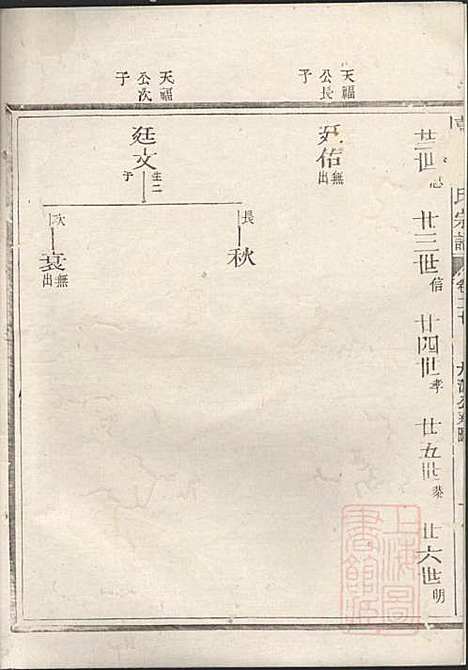 氏宗譜
廿世忠
廿三世信
廿四世孝
廿五世
廿六世明
天福公長子
廷佑無出
天福公次子
廷文生二子
長
秋
次
袞無出
上海圖書館藏